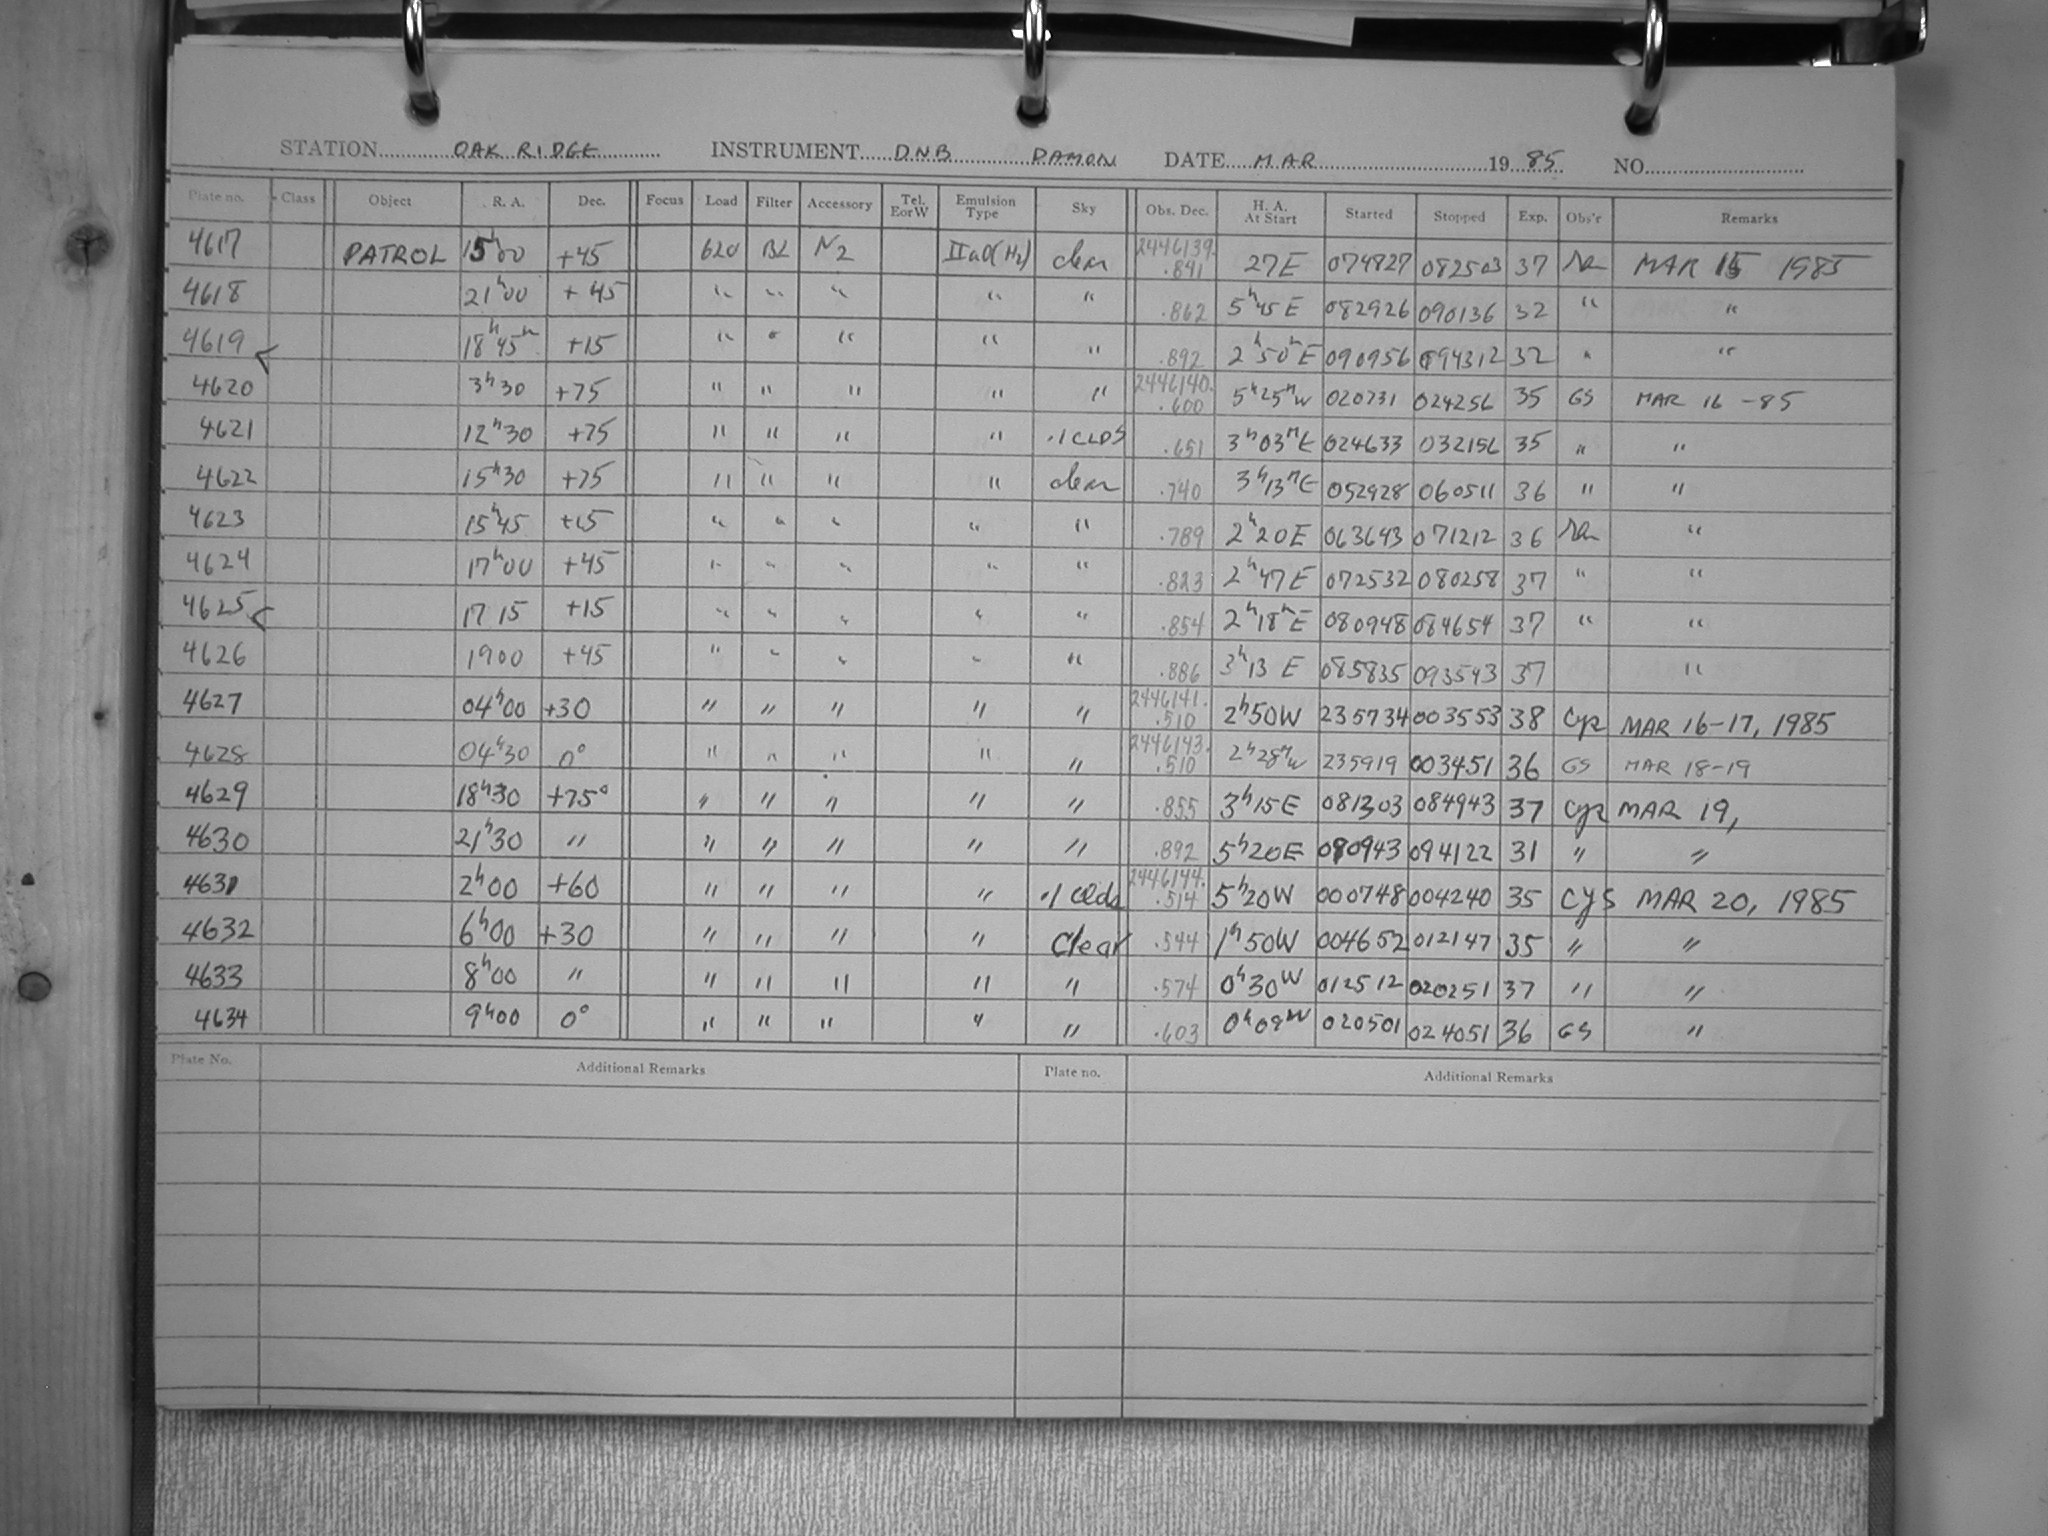 STATION OAK RIDGE INSTRUMENT DNB DAMON DATE MAR 19 85 NO.
Plate no. Class Object R. A. Dec. Focus Load Filter Accessory Tel. E or W Emulsion Type Sky Obs. Dec. H. A. At Start Started Stopped Exp. Obs'r Remarks
4617 PATROL 15h00 +45 620 BL N2 IIaO(H2) clear 2446139.841 27E 074827 082503 37 MAR 15 1985
4618 21h00 +45 " " " " " .862 5h45E 082926 090136 32 " "
4619 < 18h45m +15 " " " " " .892 2h50mE 090956 094312 32 " "
4620 3h30 +75 " " " " " 2446140.600 5h25mW 020731 024256 35 GS MAR 16 -85
4621 12h30 +75 " " " " .1 CLDS .651 3h03mE 024633 032156 35 " "
4622 15h30 +75 " " " " clear .740 3h13mE 052928 060511 36 " "
4623 15h45 +15 " " " " " .789 2h20E 063643 071212 36 "
4624 17h00 +45 " " " " " .823 2h47E 072532 080258 37 " "
4625 < 17 15 +15 " " " " " .854 2h18mE 080948 084654 37 " "
4626 1900 +45 " " " " " .886 3h13 E 085835 093543 37 "
4627 04h00 +30 " " " " " 2446141.510 2h50W 235734 003553 38 Cyr MAR 16-17, 1985
4628 04h30 0° " " " " " 2446143.510 2h28mW 235919 003451 36 GS MAR 18-19
4629 18h30 +75° " " " " " .855 3h15E 081303 084943 37 Cyr MAR 19,
4630 21h30 " " " " " " .892 5h20E 090943 094122 31 " "
4631 2h00 +60 " " " " .1 clds 2446144.514 5h20W 000748 004240 35 CYS MAR 20, 1985
4632 6h00 +30 " " " " Clear .544 1h50W 004652 012147 35 " "
4633 8h00 " " " " " " .574 0h30W 012512 020251 37 " "
4634 9h00 0° " " " " " .603 0h09mW 020501 024051 36 GS "
Plate No. Additional Remarks Plate no. Additional Remarks